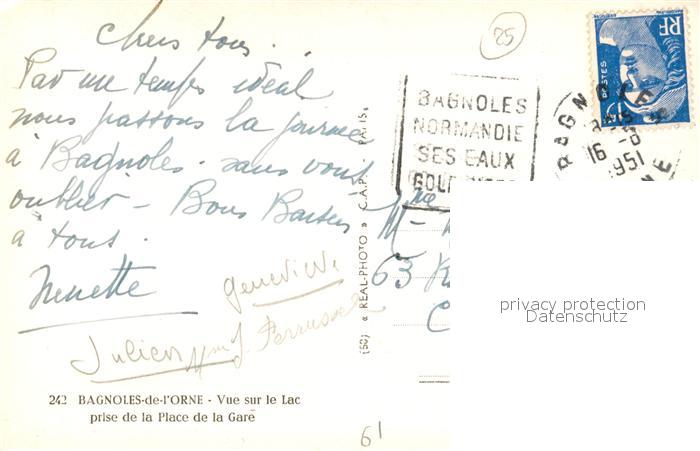 25
Chers tous.
Par un temps idéal
nous passons la journée
à Bagnoles - sans vous
oublier - Bons Baisers
à tous.
Nenette
Geneviève
Julien
242 BAGNOLES-de-l'ORNE - Vue sur le Lac
prise de la Place de la Gare
(50) « REAL-PHOTO » C.A.P. - PARIS
BAGNOLES
NORMANDIE
SES EAUX
RF
POSTES
BAGNOLE
16 -8
1951
NE
M
63 R
privacy protection
Datenschutz
61